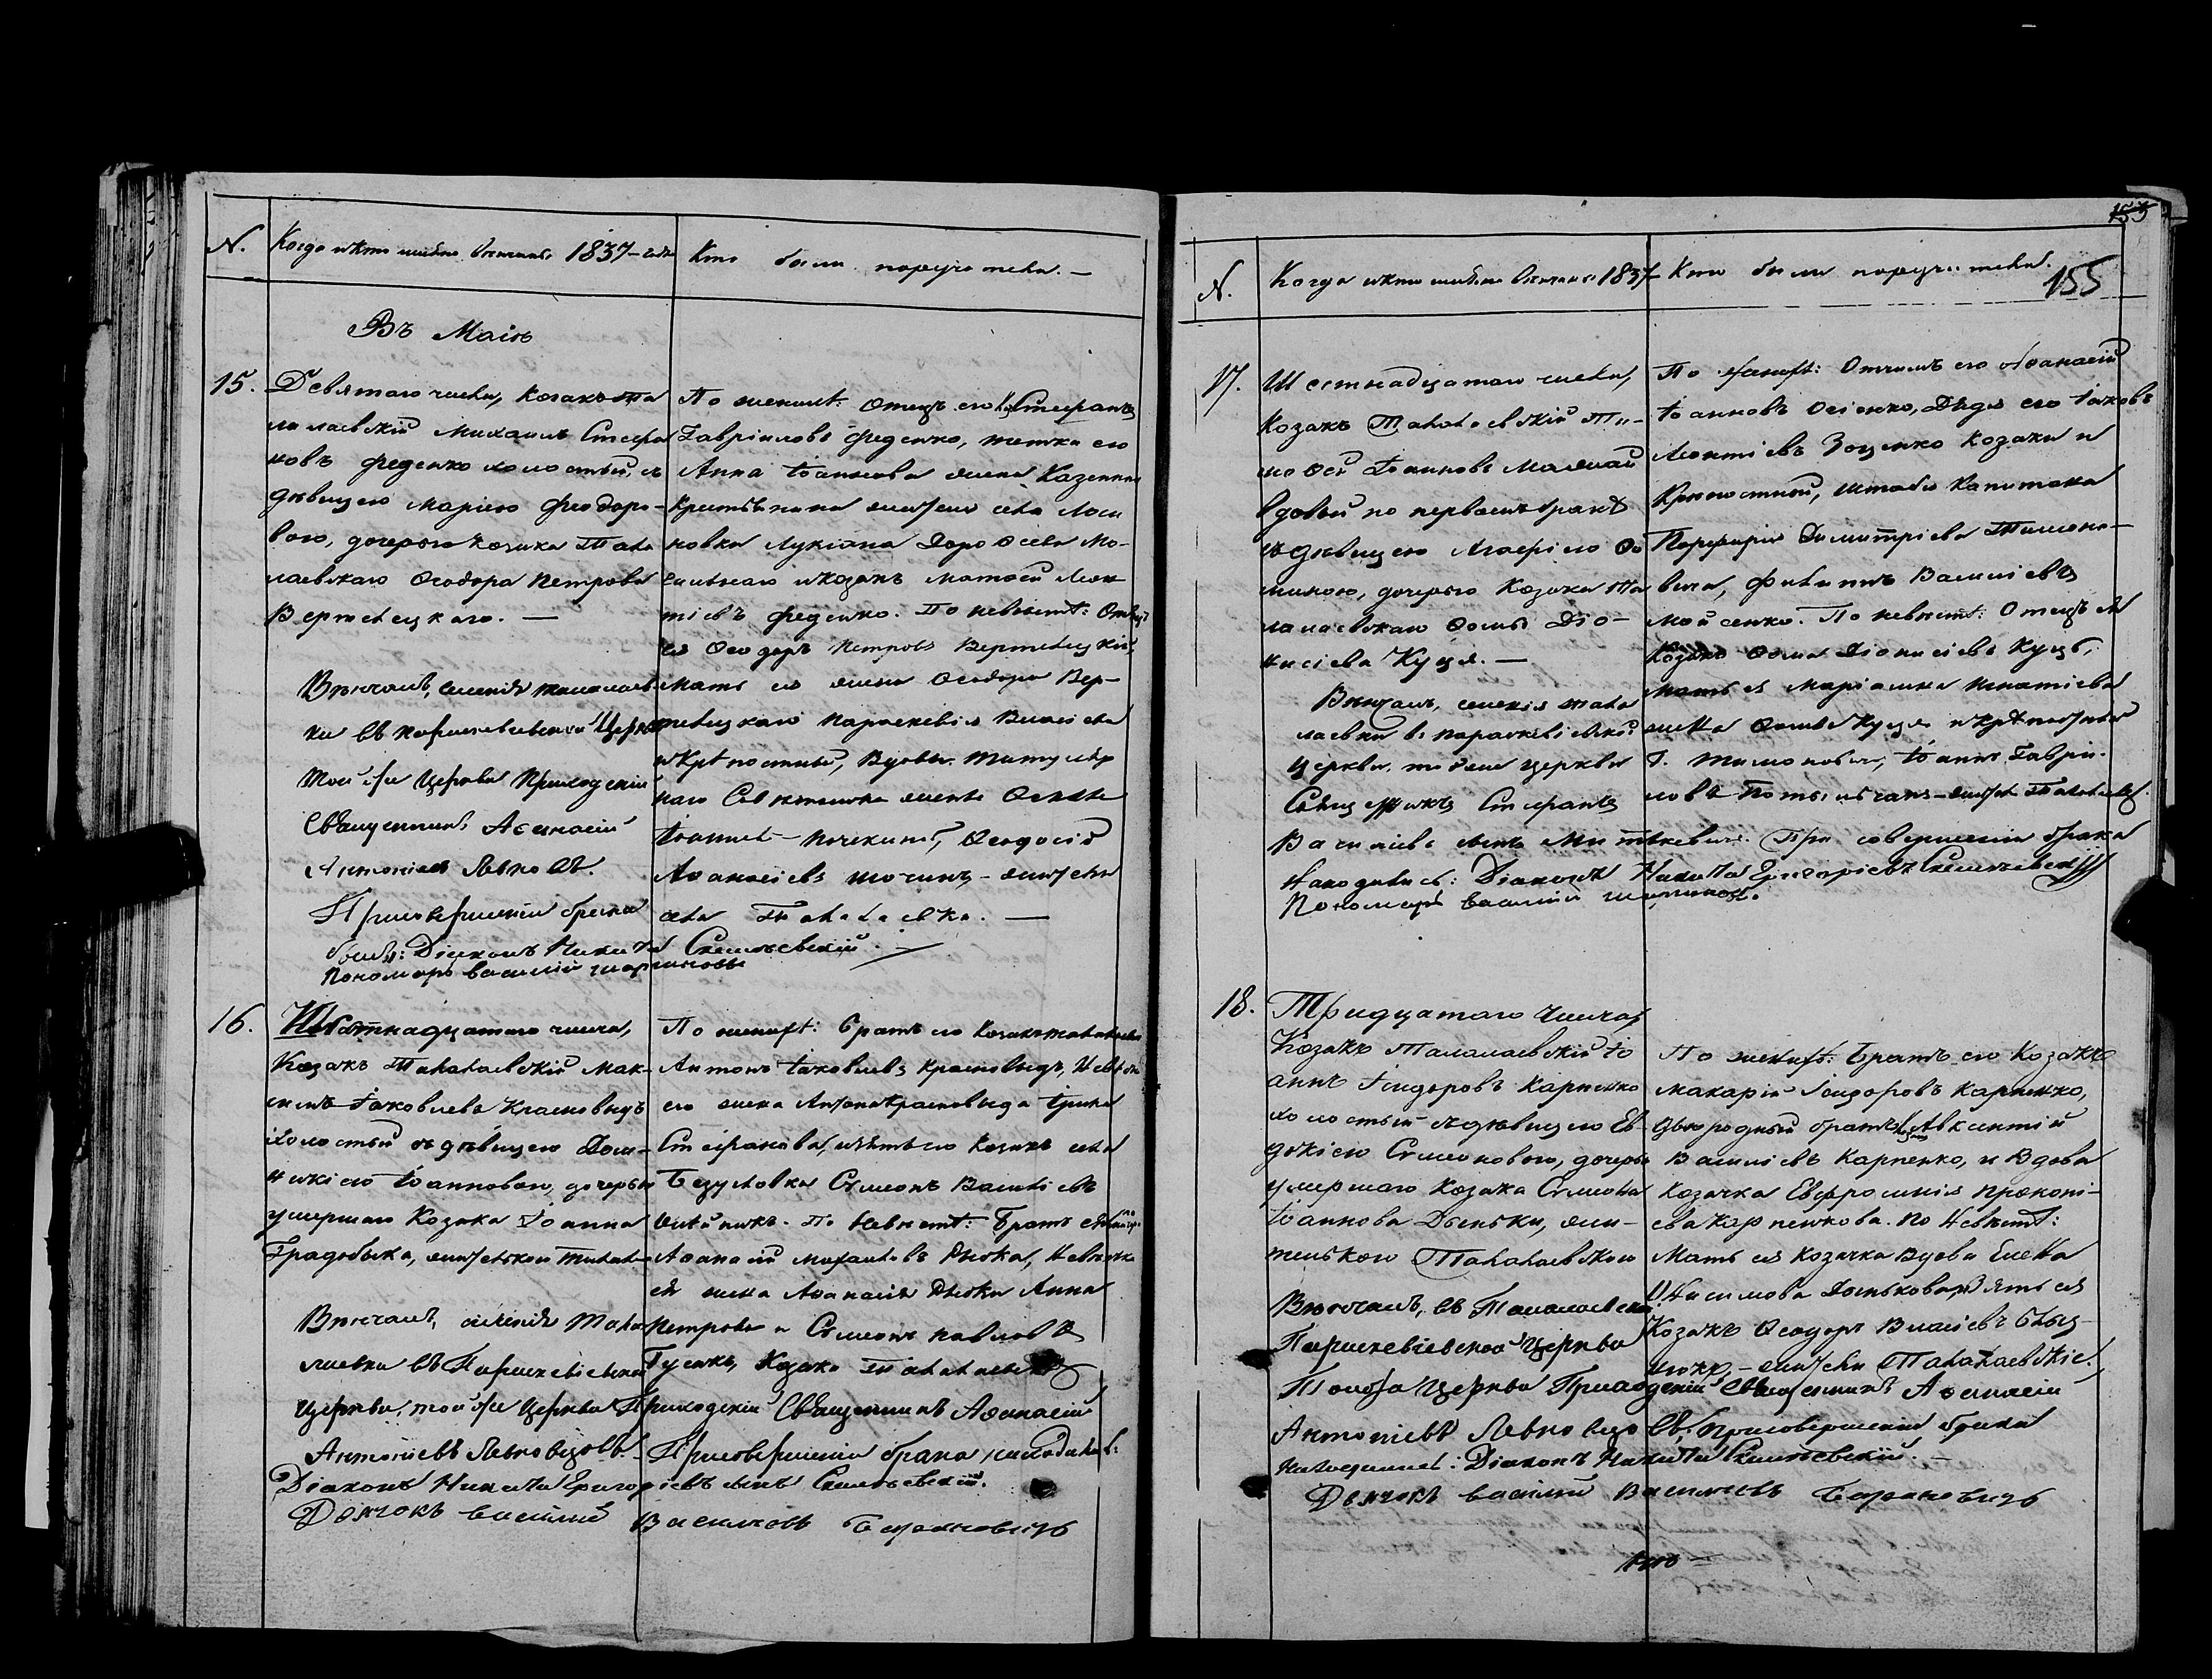 N.
Когда и кто именно венчаны 1837-года
Кто были поручители. —
Въ Маiѣ
15.
Девятаго числа, козакъ Та
лалаевскiй Михаилъ Стефа
новъ Феденко холостый, съ
дѣвицею Марiею Феодоро-
вою, дочерью козака Тала
лаевскаго Ѳеодора Петрова
Вертелецкаго. —
Вѣнчалъ, селенiя Талалаев
ки въ Параскевiевской Церкви
той же Церкви Приходскiй
Священникъ Аѳанасiй
Антонiевъ
При совершенiи брака
были: Дiаконъ Никита
Пономарь Василiй
По женихѣ: Отецъ его Стефанъ
Гаврiиловъ Феденко, тетка его
Анна Iоаннова жена Казенна
Крестьянина жителя села Лоси
новки Лукiана Дороѳеева Мо-
гильнаго и козакъ Матѳей Леон
тiевъ Феденко. По невѣстѣ: Отецъ
ея Ѳеодоръ Петровъ Вертелецкiй,
мать ея жена Ѳеодора Вер-
телецкаго Параскевiя Власiева
и Крѣпостные, Вдовы Титуляр
наго Совѣтника жены Ѳеклы
Ѳеодосiй
Аѳанасiевъ – жители
села Талалаевки. —
16.
Пятнадцатаго числа,
Козакъ Талалаевскiй Мак-
симъ Iаковлевъ Красновыдъ
холостый съ дѣвицею Дом-
никiею Iоанновою, дочерью
умершаго Козака Iоанна
Градобыка, жителькою Талал
Вѣнчалъ, селенiя Тала
лаевки въ Параскевiевской
Церкви, той же Церкви Приходскiй Священникъ Аѳанасiй
Антонiевъ Левковцовъ. При совершенiи брака находились:
Дiаконъ Никита Григорiевъ сынъ
Дьячокъ Василiй Васильевъ Барановичъ
По женихѣ: Братъ его Козакъ Талалаевскiй
Антонъ Iаковлевъ Красновыдъ, Невѣстка
его жена Антона Красновыда Ирина
Стефанова, и зять его Козакъ села
Безугловки Сѵмеонъ Василiевъ
По Невѣстѣ: Братъ ея
Аѳанасiй Михайловъ Невѣстка
ея жена Аѳанасiя Анна
Петрова и Сѵмеонъ Павловъ
Гусакъ, Козаки Талалаевскiе
153
155
N.
Когда и кто именно венчаны 1837
Кто были поручители.
17.
Шестнадцатаго числа,
Козакъ Талалаевскiй Ти-
моѳей Iоанновъ
вдовый по первомъ бракѣ
съ дѣвицею Агафiею Ѳо
миною, дочерью Козака Та
лалаевскаго Ѳомы Дiо-
нисiева Куця. —
Вѣнчалъ, селенiя Тала
лаевки въ Параскевiевской
Церкви, той же церкви
Священникъ Стефанъ
Василiевъ сынъ При совершенiи брака
Находились: Дiаконъ Никита Григорiевъ
Пономарь Василiй
По женихѣ: Отчимъ его Аѳанасiй
Iоанновъ Осiенко, Дядя его Iаковъ
Леонтiевъ Зоценко Козаки и
Крѣпостный, Штабсъ Капитана
Порфирiя Димитрiева Тимоно-
вича, Филиппъ Василiевъ
Мойсенко. По невѣстѣ: Отецъ ея
Козакъ Ѳома Дiонисiевъ Куць,
мать ея Марiамна Игнатiева
жена Ѳомы Куця и Крѣпостный
Г. Тимоновича, Iоаннъ Гаврiи-
ловъ – жители Талалаевки.
18.
Тридцатаго Числа,
Козакъ Талалаевскiй Iо
аннъ Iсидоровъ Карпенко
холостый съ дѣвицею Ев-
докiею Сѵмеоновою, дочерью
умершаго Козака Сѵмеона
Iоаннова Деньки, жи-
телькою Талалаевскою
Вѣнчалъ, въ Талалаевской
Параскевiевской Церкви
Той же Церкви Приходскiй Священникъ Аѳанасiй
Антонiевъ Левковцовъ, При совершенiи брака
находились: Дiаконъ Никита
Дьячокъ Василiй Васильевъ Барановичъ
По женихѣ: Братъ его Козакъ
Макарiй Iсидоровъ Карпенко,
двоюродный братъ Авксентiй
Василiевъ Карпенко, и Вдова
Козачка Евфросинiя Прокопi-
ева Карпенкова. По Невѣстѣ:
Мать ея Козачка Вдова Елена
Анисимова Денькова, зять ея
Козакъ Ѳеодоръ Власiевъ
– жители Талалаевскiе.